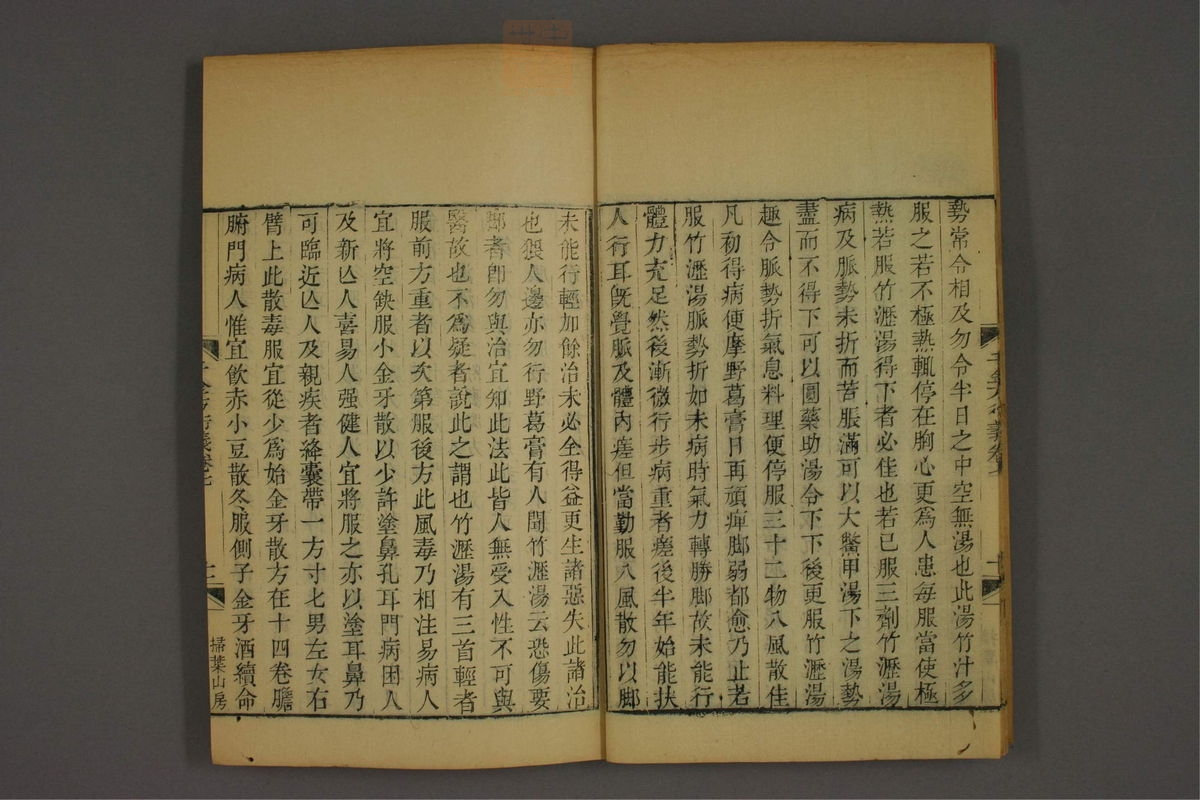 勢常令相及勿令半日之中空無湯也此湯竹汁多
服之若不極熱輒停在胸心更爲人患每服當使極
熱若服竹瀝湯得下者必佳也若已服三劑竹瀝湯
病及脈勢未折而苦脹滿可以大鱉甲湯下之湯勢
盡而不得下可以圓藥助湯令下下後更服竹瀝湯
趣令脈勢折氣息料理便停服三十二物八風散佳
凡初得病便摩野葛膏日再頑痺脚弱都愈乃止若
服竹瀝湯脈勢折如未病時氣力轉勝脚故未能行
體力充足然後漸微行步病重者瘥後半年始能扶
人行耳旣覺脈及體內瘥但當勤服八風散勿以脚
未能行輕加餘治未必全得益更生諸惡失此諸治
也猥人邊亦勿行野葛膏有人聞竹瀝湯云恐傷要
鄙者卽勿與治宜知此法此皆人無受入性不可與
醫故也不爲疑者說此之謂也竹瀝湯有三首輕者
服前方重者以次第服後方此風毒乃相注易病人
宜將空缺服小金牙散以少許塗鼻孔耳門病困人
及新亾人喜易人强健人宜將服之亦以塗耳鼻乃
可臨近亾人及親疾者絳囊帶一方寸匕男左女右
臂上此散毒服宜從少爲始金牙散方在十四卷膽
腑門病人惟宜飲赤小豆散冬服側子金牙酒續命
千金方衍義卷七
掃葉山房